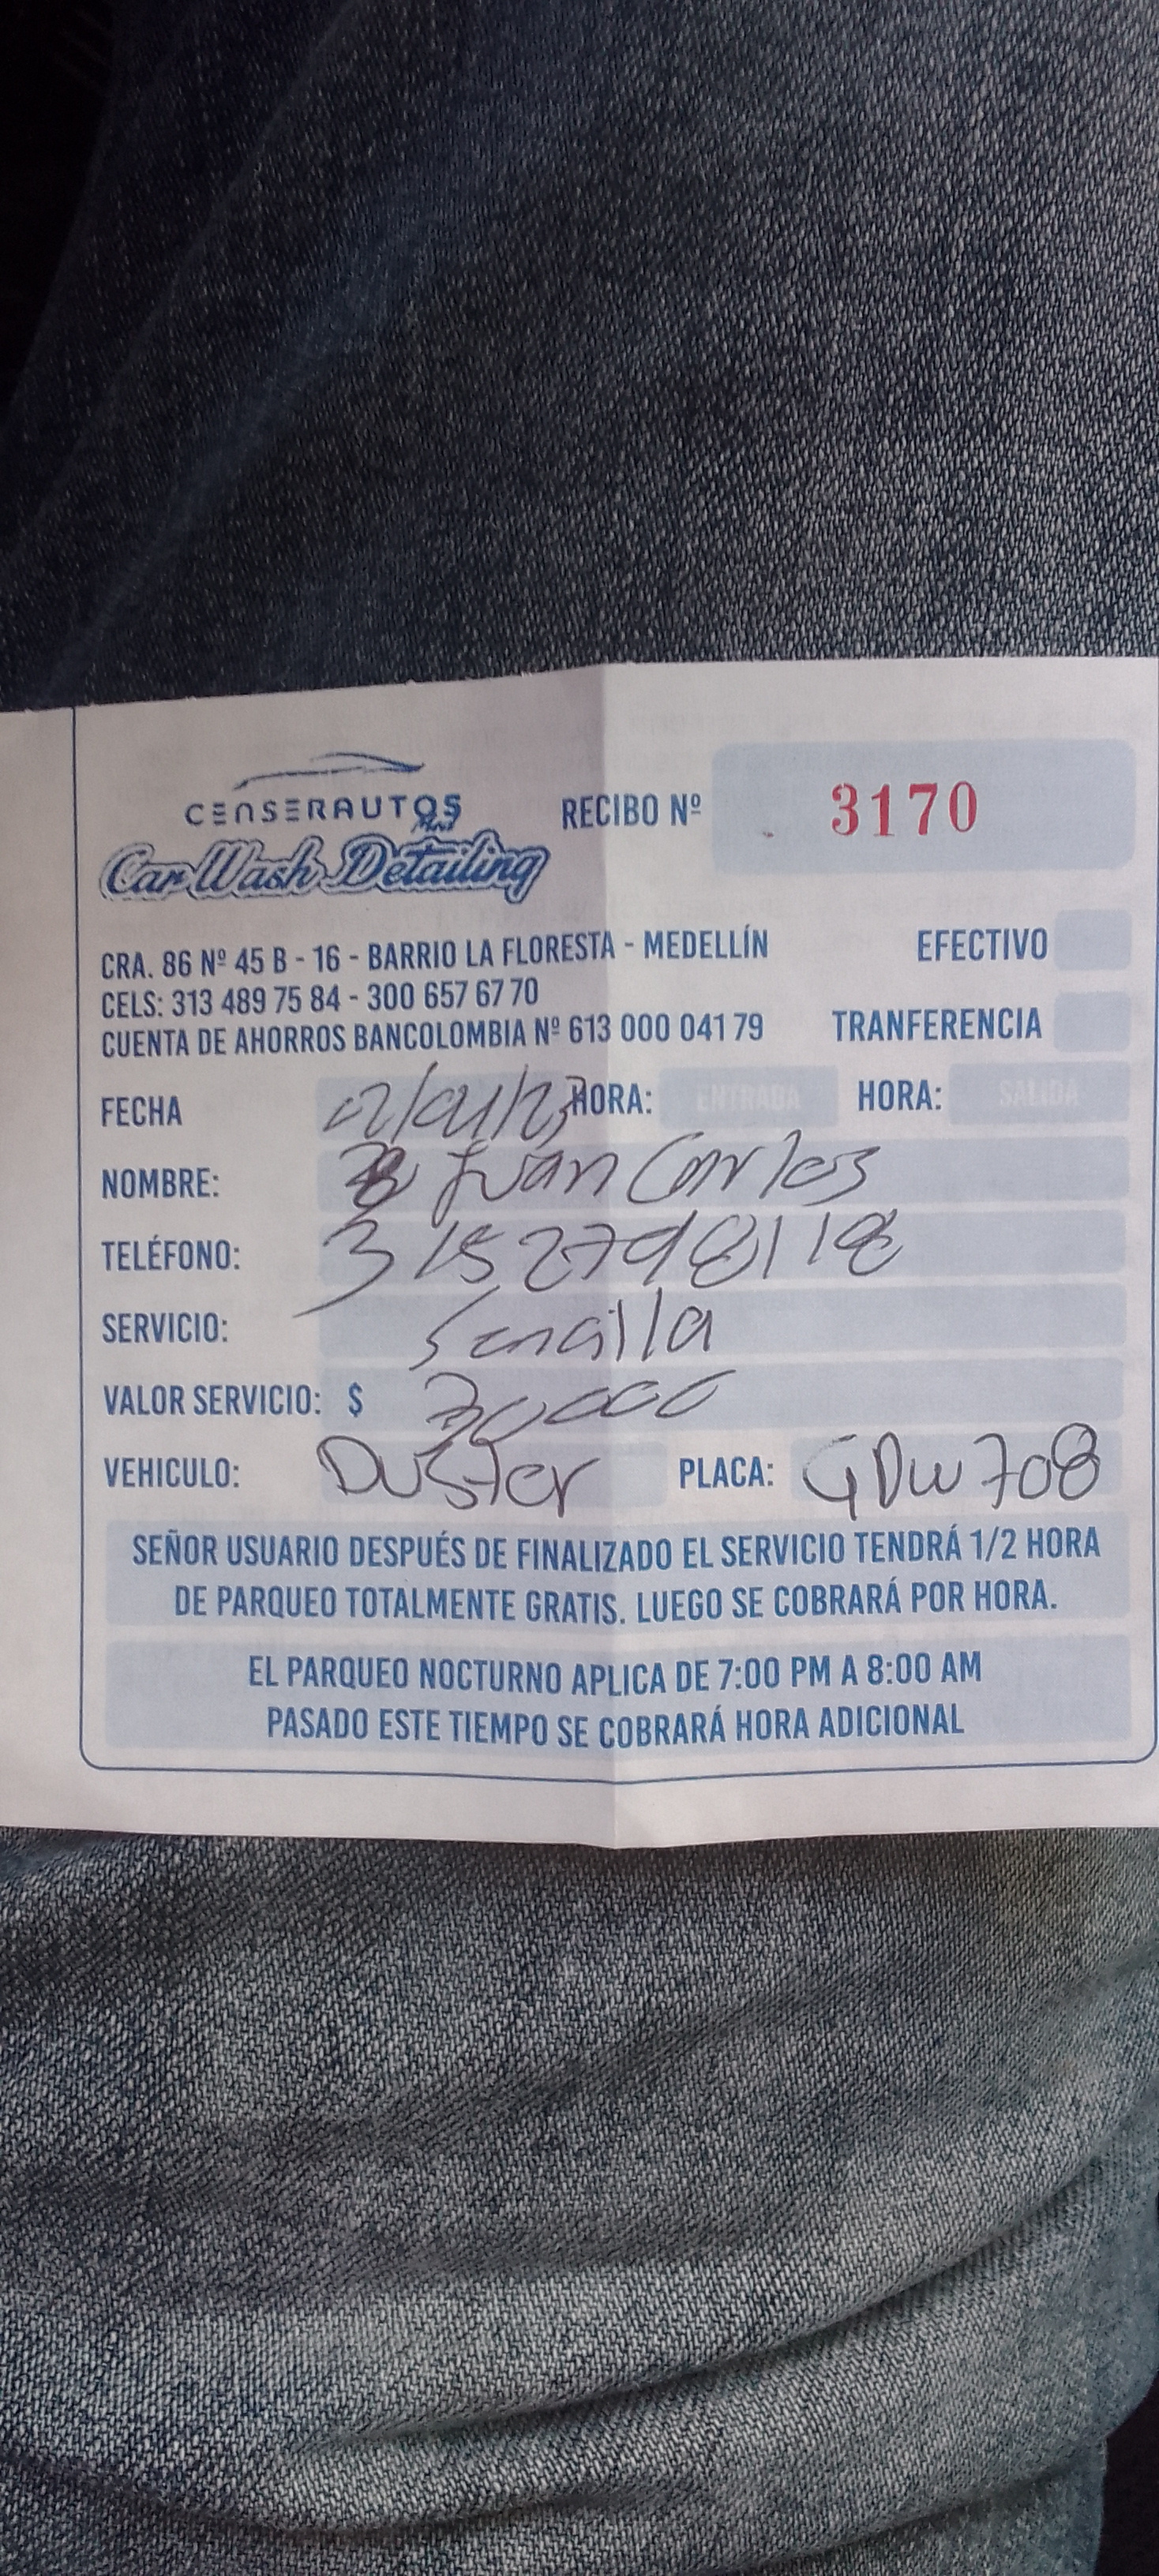 CENSERAUTOS
Car Wash Detailing
RECIBO Nº 3170
CRA. 86 Nº 45 B - 16 - BARRIO LA FLORESTA - MEDELLÍN
EFECTIVO
CELS: 313 489 75 84 - 300 657 67 70
CUENTA DE AHORROS BANCOLOMBIA Nº 613 000 041 79
TRANFERENCIA
FECHA HORA: ENTRADA HORA: SALIDA
NOMBRE: Juan Carlos
TELÉFONO:
SERVICIO: Sencilla
VALOR SERVICIO: $ 30000
VEHICULO: Duster PLACA: GDW 708
SEÑOR USUARIO DESPUÉS DE FINALIZADO EL SERVICIO TENDRÁ 1/2 HORA
DE PARQUEO TOTALMENTE GRATIS. LUEGO SE COBRARÁ POR HORA.
EL PARQUEO NOCTURNO APLICA DE 7:00 PM A 8:00 AM
PASADO ESTE TIEMPO SE COBRARÁ HORA ADICIONAL